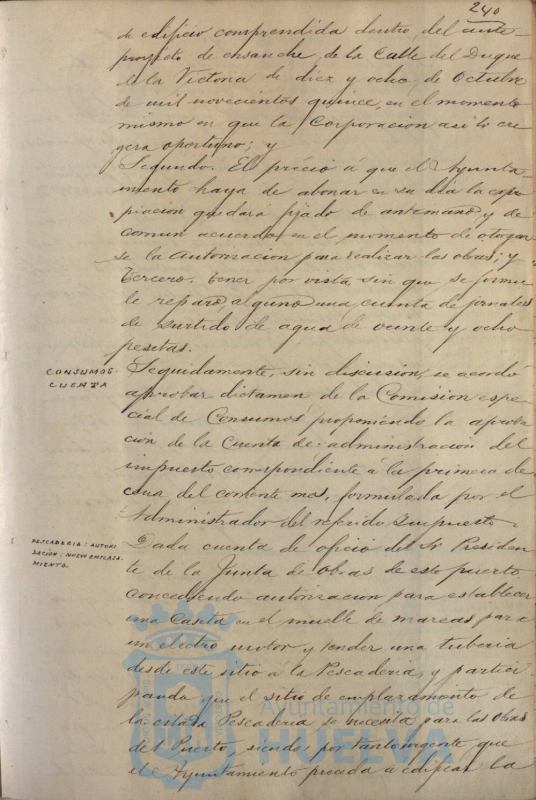 240
de edificio comprendida dentro del ante-
proyecto de ensanche de la Calle del Duque
de la Victoria de diez y ocho de Octubre
de mil novecientos quince, en el momento
mismo en que la Corporacion asi lo cre
yera oportuno; y
Segundo. El précio á que el Ayunta-
miento haya de abonar en su dia la expro
piacion quedara fijado de antemano y de
comun acuerdo en el momento de otorgar
se la autorizacion para realizar las obras; y
Tercero. Tener por vista sin que se formu
le reparo alguno una cuenta de jornales
de surtido de agua de veinte y ocho
pesetas.
CONSUMOS:
CUENTA
Seguidamente, sin discusion, se acordó
aprobar dictamen de la Comision espe
cial de Consumos proponiendo la aproba
cion de la cuenta de administración del
impuesto correspondiente á la primera de
cena del corriente mes, formulada por el
Administrador del referido Impuesto.
PESCADERIA: AUTORI
ZACIÓN: NUEVO EMPLAZA-
MIENTO.
Dada cuenta de oficio del Sr Presiden
te de la Junta de Obras de este puerto
concediendo autorizacion para establecer
una caseta en el muelle de mareas para
un electro motor y tender una tuberia
desde este sitio á la Pescaderia, y partici
pando que el sitio de emplazamento de
la citada Pescaderia se necesita para las Obras
del Puerto, siendo por tanto urgente que
el Ayuntamiento proceda á edificar la
Ayuntamiento de
HUELVA